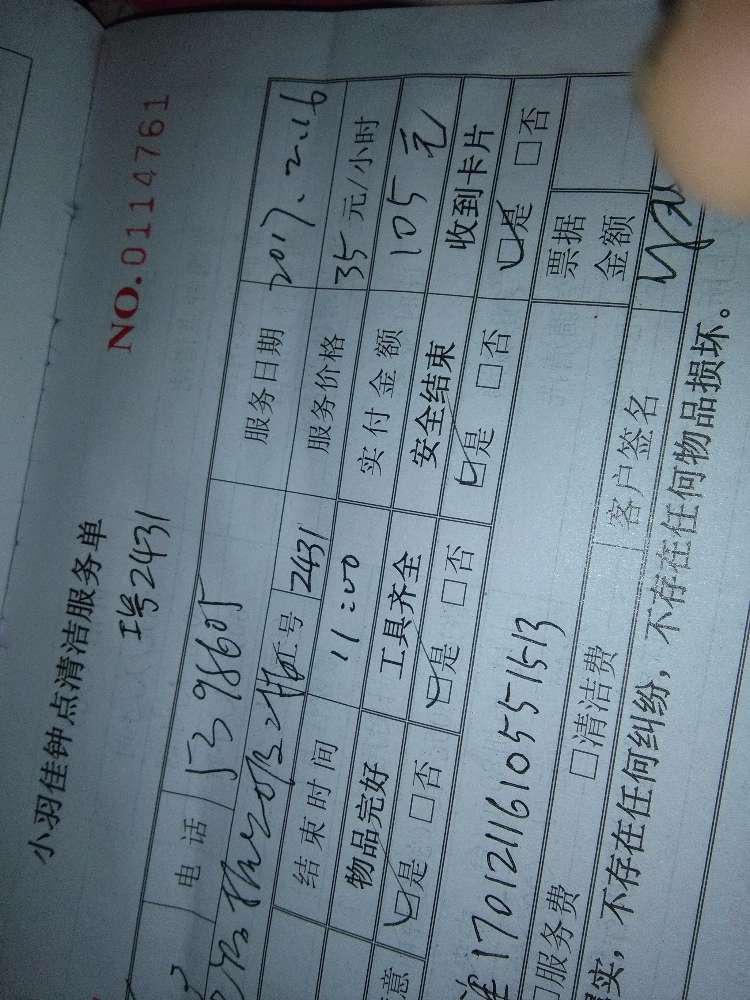 NO.0114761
小羽佳钟点清洁服务单
工号2431
电话 服务日期 2017.2.16
工号 2431 服务价格 35元/小时
结束时间 11:00 实付金额 105元
物品完好 工具齐全 安全结束 收到卡片
意 ☑是 □否 ☑是 □否 ☑是 □否 ☑是 □否
1701211610551513
服务费 □清洁费 票据金额
客户签名
实,不存在任何纠纷,不存在任何物品损坏。